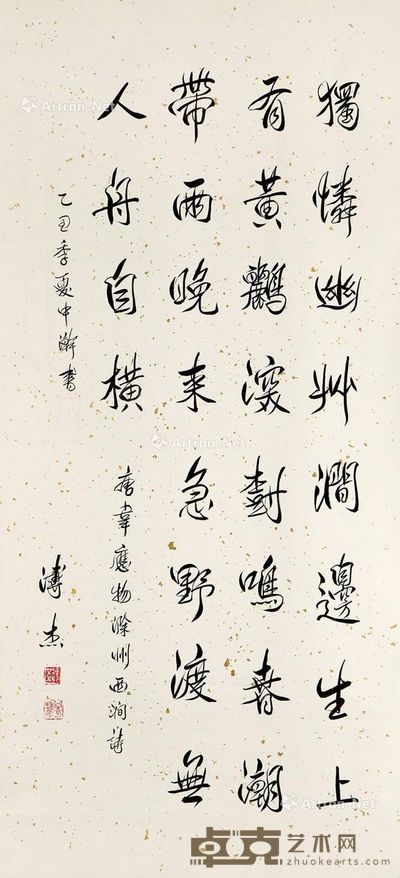 獨憐幽艸澗邊生上
有黃鸝深樹鳴春潮
帶雨晚來急野渡無
人舟自橫
唐韋應物滁州西澗詩
乙丑季夏中澣書
溥杰
Artron.Net
Artron.Net
Artron.Net
卓克艺术网
zhuokearts.com